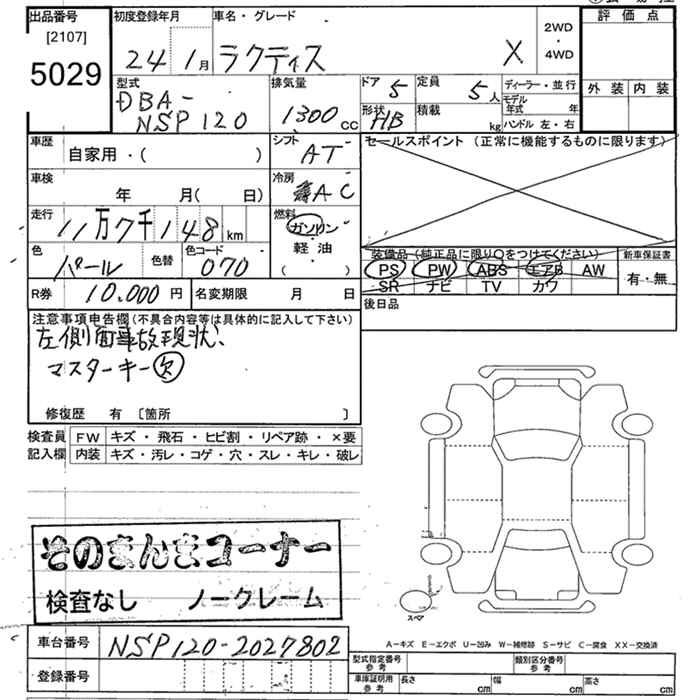 出品番号 初度登録年月 車名・グレード 評価点
[2107]
5029
24 1月 ラクティス X 2WD・4WD
型式 排気量 ドア 5 定員 5人 ディーラー・並行 外装 内装
DBA-NSP120 1300cc 形状 HB 積載 kg モデル年式 年
ハンドル 左・右
車歴 シフト セールスポイント (正常に機能するものに限ります)
自家用・( ) AT
車検 冷房
年 月( 日) AC
走行 燃料
11万7千148km ガソリン・軽油・( )
色 色替 色コード 装備品(純正品に限り○をつけてください) 新車保証書
パール 070 PS PW ABS エアB AW 有・無
SR ナビ TV カワ
R券 10.000円 名変期限 月 日 後日品
注意事項申告欄(不具合内容等は具体的に記入して下さい)
左側面事故現状、
マスターキー欠
修復歴 有 [箇所 ]
検査員 FW キズ・飛石・ヒビ割・リペア跡・×要
記入欄 内装 キズ・汚レ・コゲ・穴・スレ・キレ・破レ
そのまんまコーナー
検査なし ノークレーム
スペア
A－キズ E－エクボ U－凹み W－補修跡 S－サビ C－腐食 XX－交換済
車台番号 NSP120-2027802 型式指定番号 参考 類別区分番号 参考
登録番号 車庫証明用 参考 長さ cm 幅 cm 高さ cm